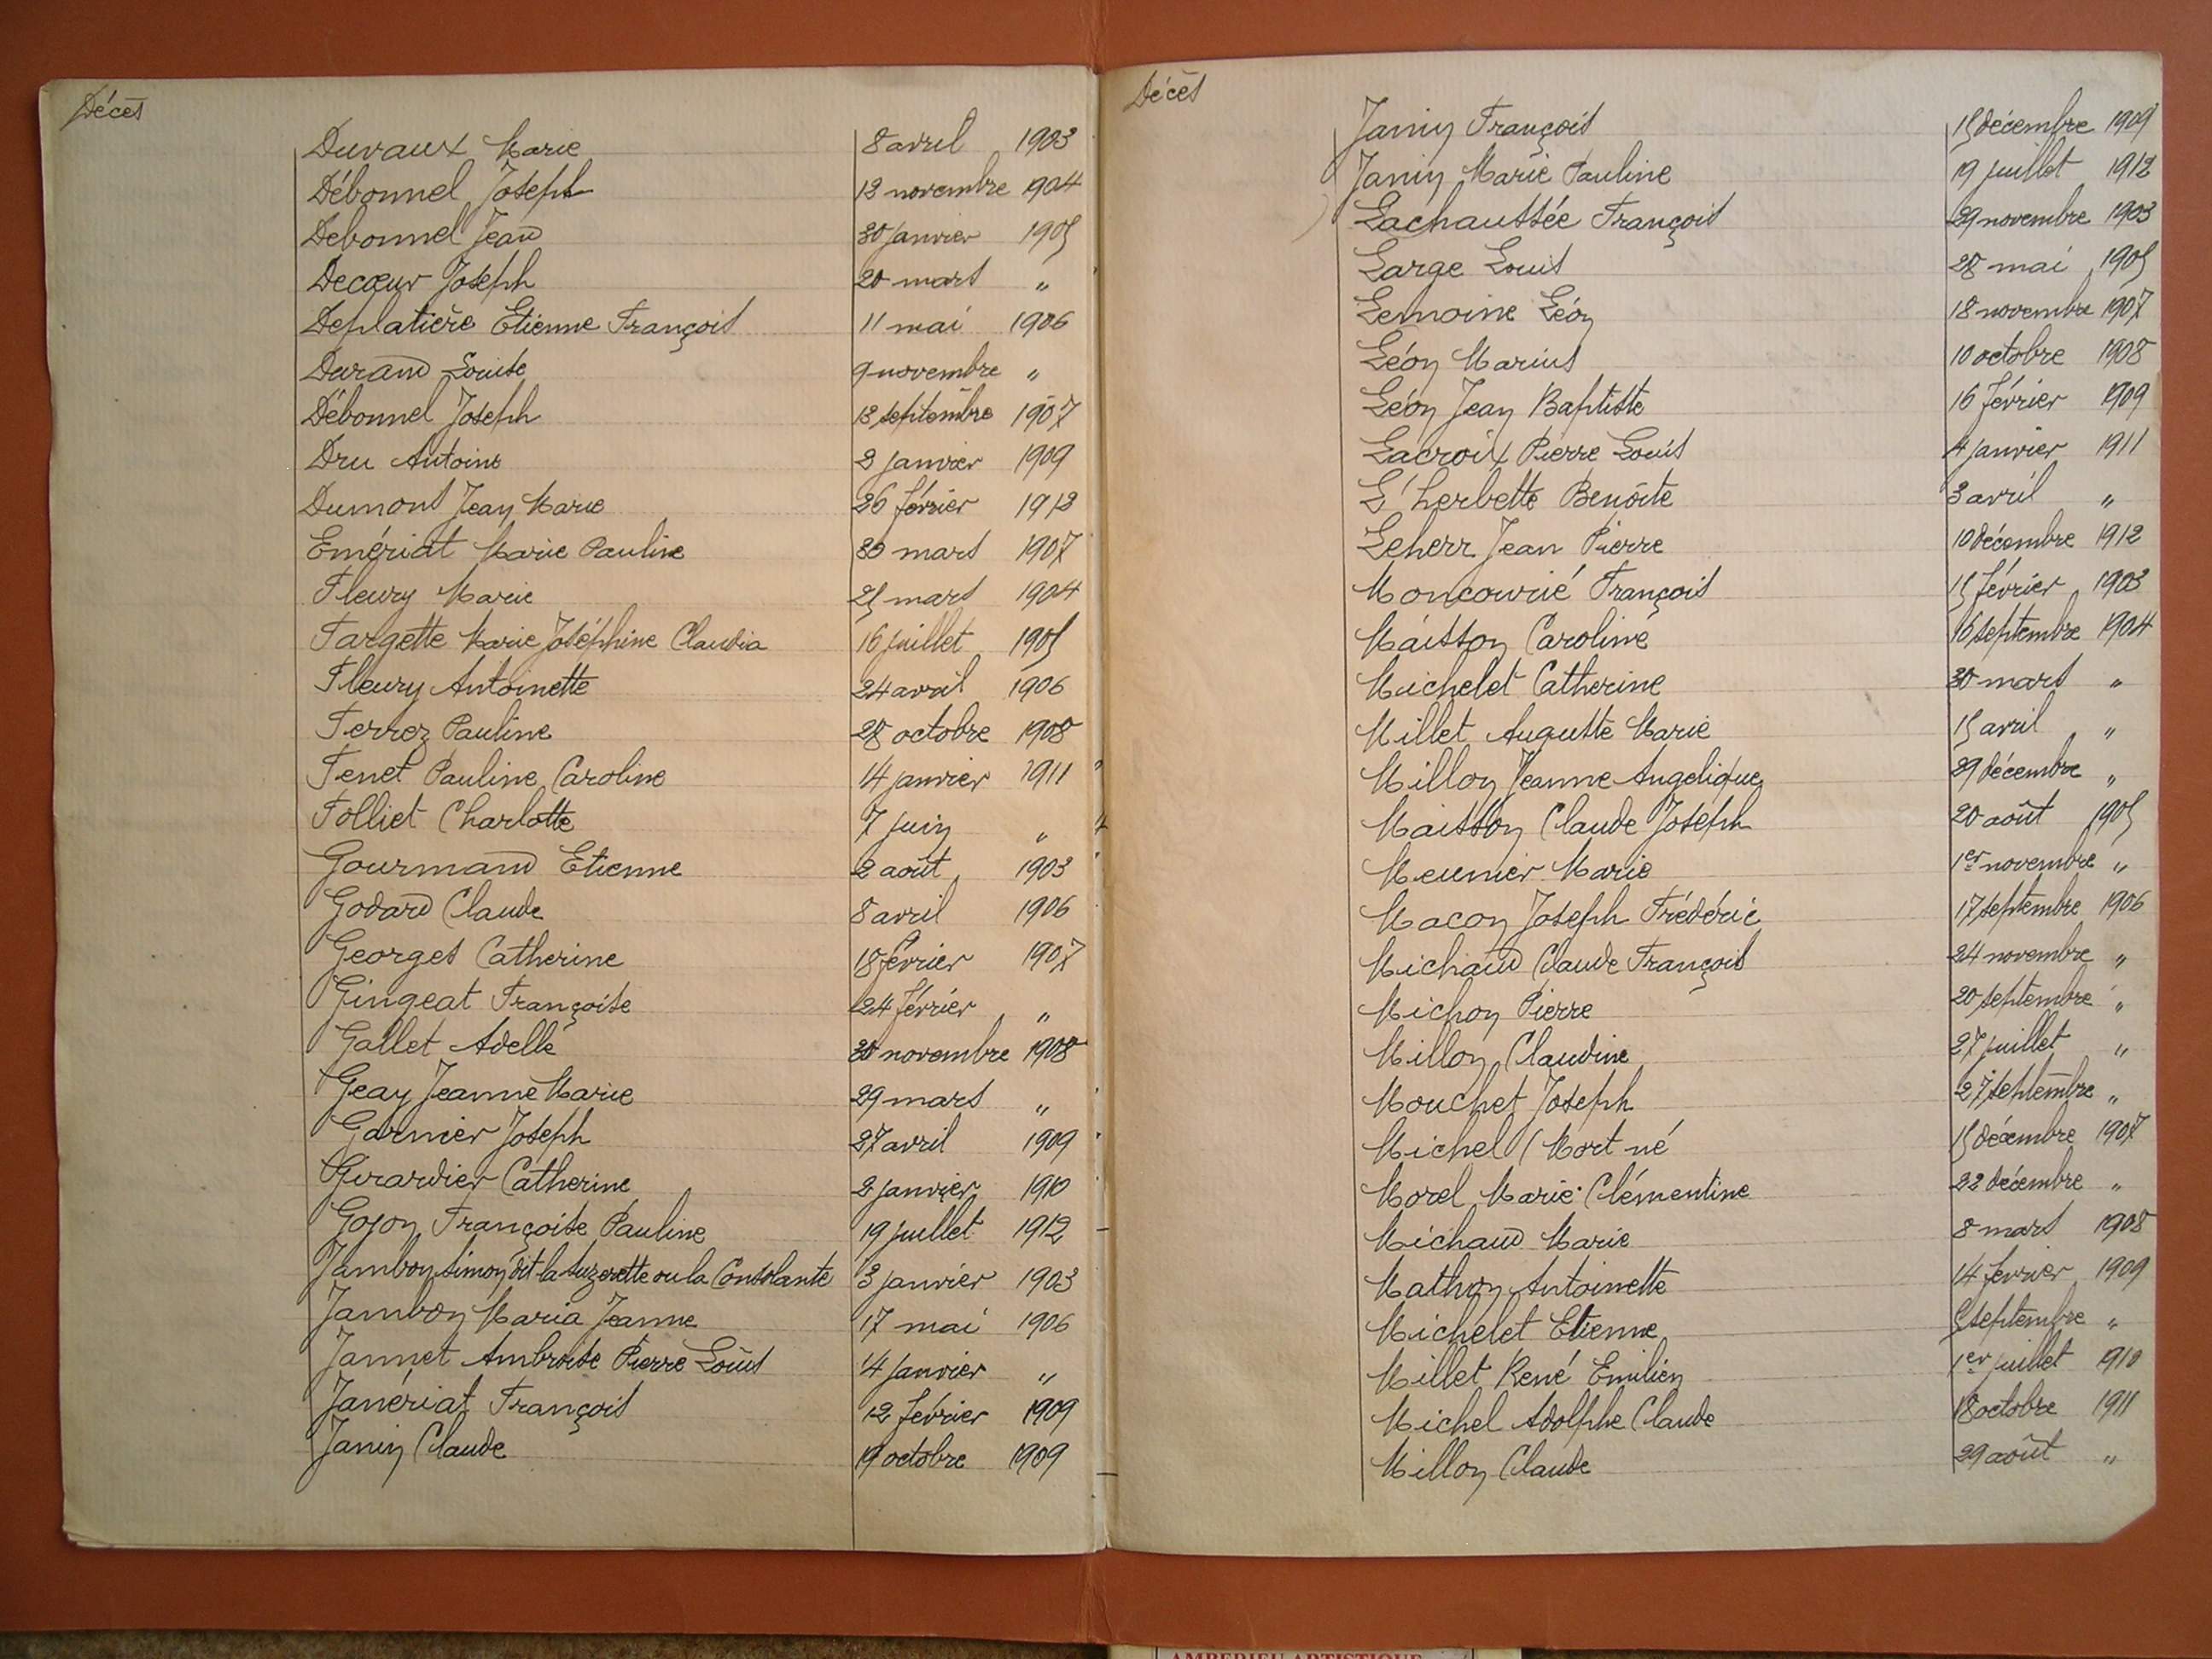 Décès
Duvaux Marie 8 avril 1903
Débonnel Joseph 12 novembre 1904
Debonnel Jean 30 janvier 1905
Decœur Joseph 20 mars "
Deplatière Etienne François 11 mai 1906
Durand Louise 9 novembre "
Débonnel Joseph 13 septembre 1907
Dru Antoine 3 janvier 1909
Dumont Jean Marie 26 février 1912
Emériat Marie Pauline 30 mars 1907
Fleury Marie 25 mars 1904
Fargette Marie Joséphine Claudia 16 juillet 1905
Fleury Antoinette 24 avril 1906
Ferrez Pauline 28 octobre 1908
Fenet Pauline Caroline 14 janvier 1911
Folliet Charlotte 7 juin "
Gourmand Etienne 2 août 1903
Godard Claude 8 avril 1906
Georges Catherine 18 février 1907
Gingeat Françoise 24 février "
Gallet Adelle 30 novembre 1908
Geay Jeanne Marie 29 mars "
Garnier Joseph 27 avril 1909
Girardier Catherine 2 janvier 1910
Gojon Françoise Pauline 19 juillet 1912
Jambon Simon dit la Suzerette ou la Consolante 3 janvier 1903
Jambon Maria Jeanne 17 mai 1906
Jannet Ambroise Pierre Louis 4 janvier "
Janériat François 12 février 1909
Janin Claude 19 octobre 1909
Décès
Janin François 15 décembre 1909
Janin Marie Pauline 19 juillet 1912
Lachaussée François 29 novembre 1903
Large Louis 28 mai 1905
Lemoine Léon 18 novembre 1907
Léon Marius 10 octobre 1908
Léon Jean Baptiste 16 février 1909
Lacroix Pierre Louis 4 janvier 1911
L'herbette Benoîte 3 avril "
Leherr Jean Pierre 10 décembre 1912
Moncourié François 15 février 1903
Maisson Caroline 16 septembre 1904
Michelet Catherine 30 mars "
Millet Auguste Marie 15 avril "
Millon Jeanne Angelique 29 décembre "
Maisson Claude Joseph 20 août 1905
Meunier Marie 1er novembre "
Macon Joseph Frédéric 17 septembre 1906
Michaud Claude François 24 novembre "
Michon Pierre 20 septembre "
Millon Claudine 27 juillet "
Mouchet Joseph 27 septembre "
Michel (Mort né 15 décembre 1907
Morel Marie Clémentine 22 décembre "
Michaud Marie 8 mars 1908
Mathon Antoinette 14 février 1909
Michelet Etienne 5 septembre "
Millet René Emilien 1er juillet 1910
Michel Adolphe Claude 18 octobre 1911
Millon Claude 29 août "
AMBERIEU ARTISTIQUE